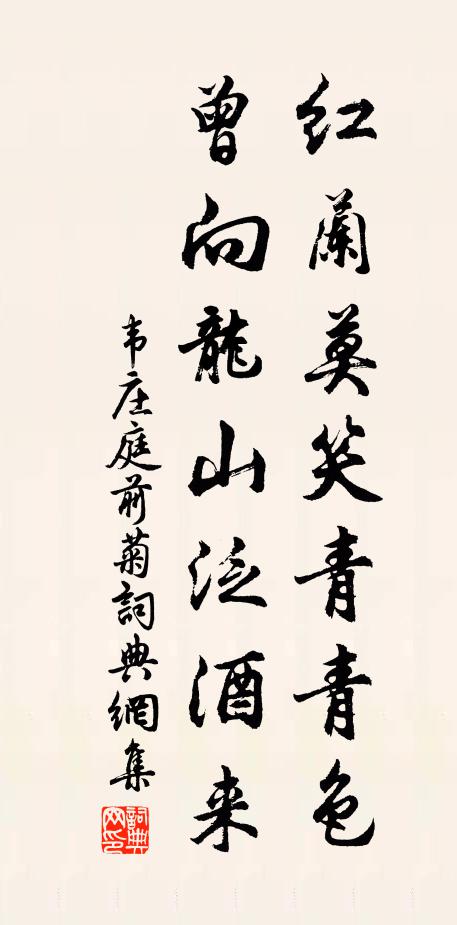 红蘭莫笑青青色
曾向龍山泛酒来
韦庄庭前菊詞典網集
詞典网印